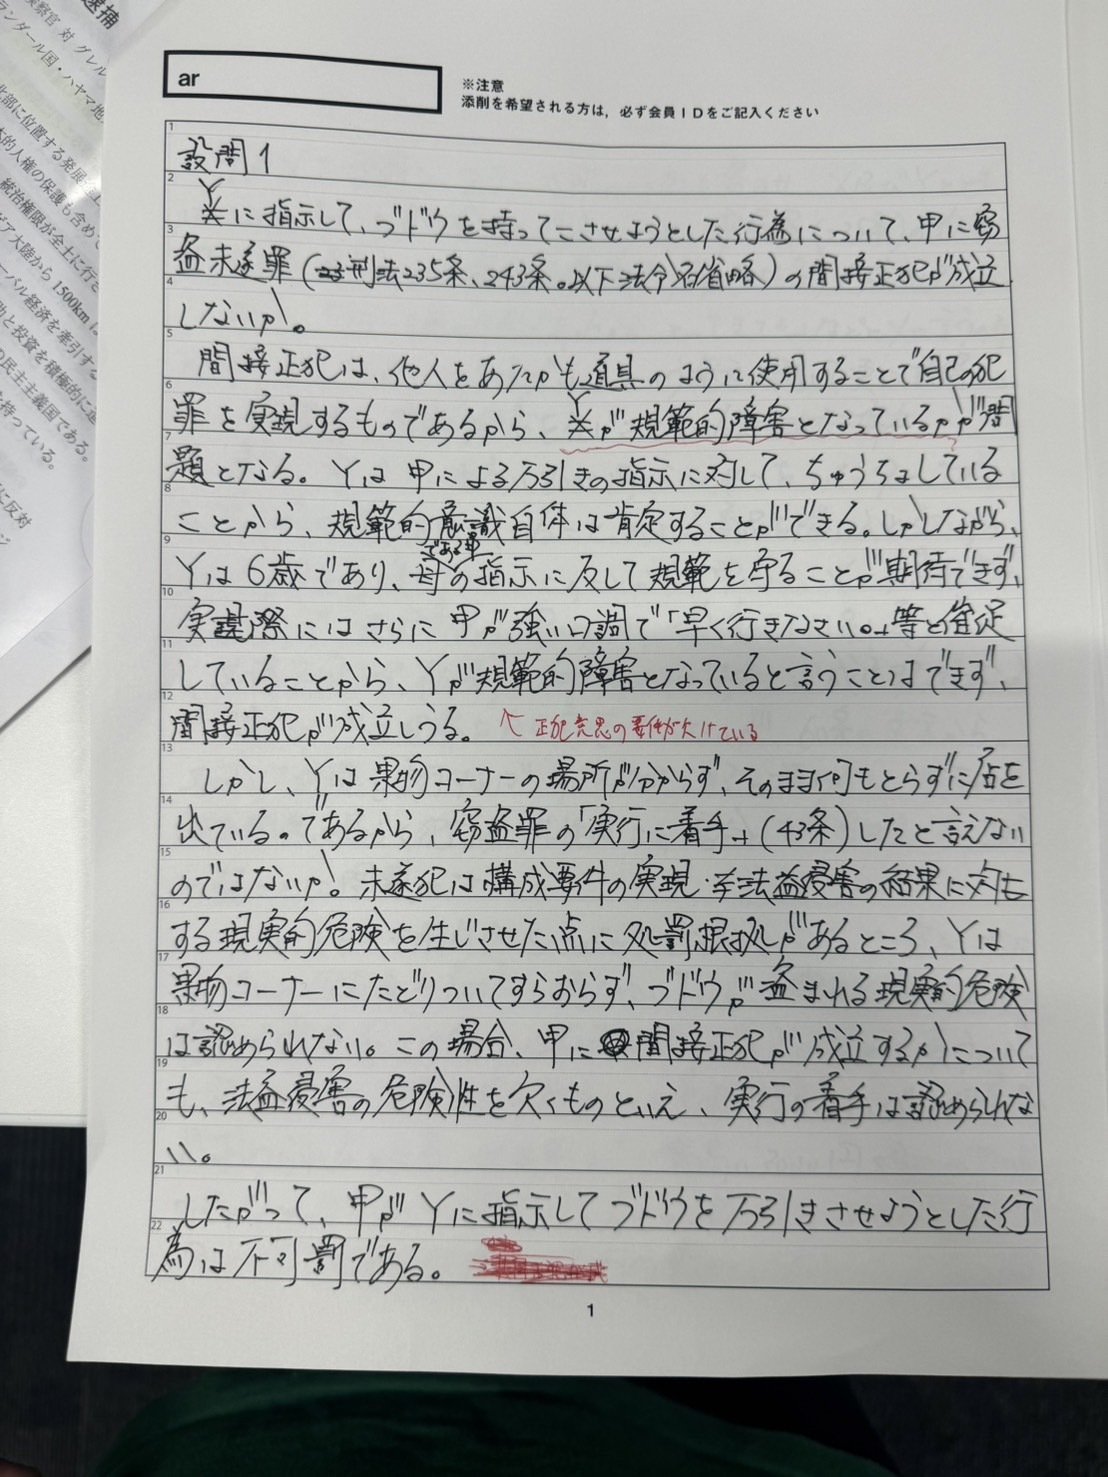 逮捕
検察官 対 グレル
ランダール国・ハヤマ地
北部に位置する発展
本的人権の保護も含めて
統治権限が全土に行き
ア大陸から1500km
ーバル経済を牽引する
助と投資を積極的に
の民主主義国である。
を持っている。
に反対
ar
※注意
添削を希望される方は，必ず会員IDをご記入ください
1
設問1
2
Yに指示して、ブドウを持ってこさせようとした行為について、甲に窃
3
盗未遂罪(刑法235条、243条。以下法令名省略)の間接正犯が成立
4
しないか。
5
間接正犯は、他人をあたかも道具のように使用することで自己の犯
6
罪を実現するものであるから、Yが規範的障害となっているかが問
7
題となる。Yは甲による万引きの指示に対して、ちゅうちょしている
8
ことから、規範的意識自体は肯定することができる。しかしながら、
9
Yは6歳であり、母である甲の指示に反して規範を守ることが期待できず、
10
実際にはさらに甲が強い口調で「早く行きなさい。」等と催促
11
していることから、Yが規範的障害となっていると言うことはできず、
12
間接正犯が成立しうる。 ↖ 正犯意思の要件が欠けている
13
しかし、Yは果物コーナーの場所が分からず、そのまま何もとらずに店を
14
出ている。であるから、窃盗罪の「実行に着手」(43条)したと言えない
15
のではないか。未遂犯は構成要件の実現・法益侵害の結果に対
16
する現実的危険を生じさせた点に処罰根拠があるところ、Yは
17
果物コーナーにたどりついてすらおらず、ブドウが盗まれる現実的危険
18
は認められない。この場合、甲に間接正犯が成立するかについて
19
も、法益侵害の危険性を欠くものといえ、実行の着手は認められな
20
い。
21
したがって、甲がYに指示してブドウを万引きさせようとした行
22
為は不可罰である。
1